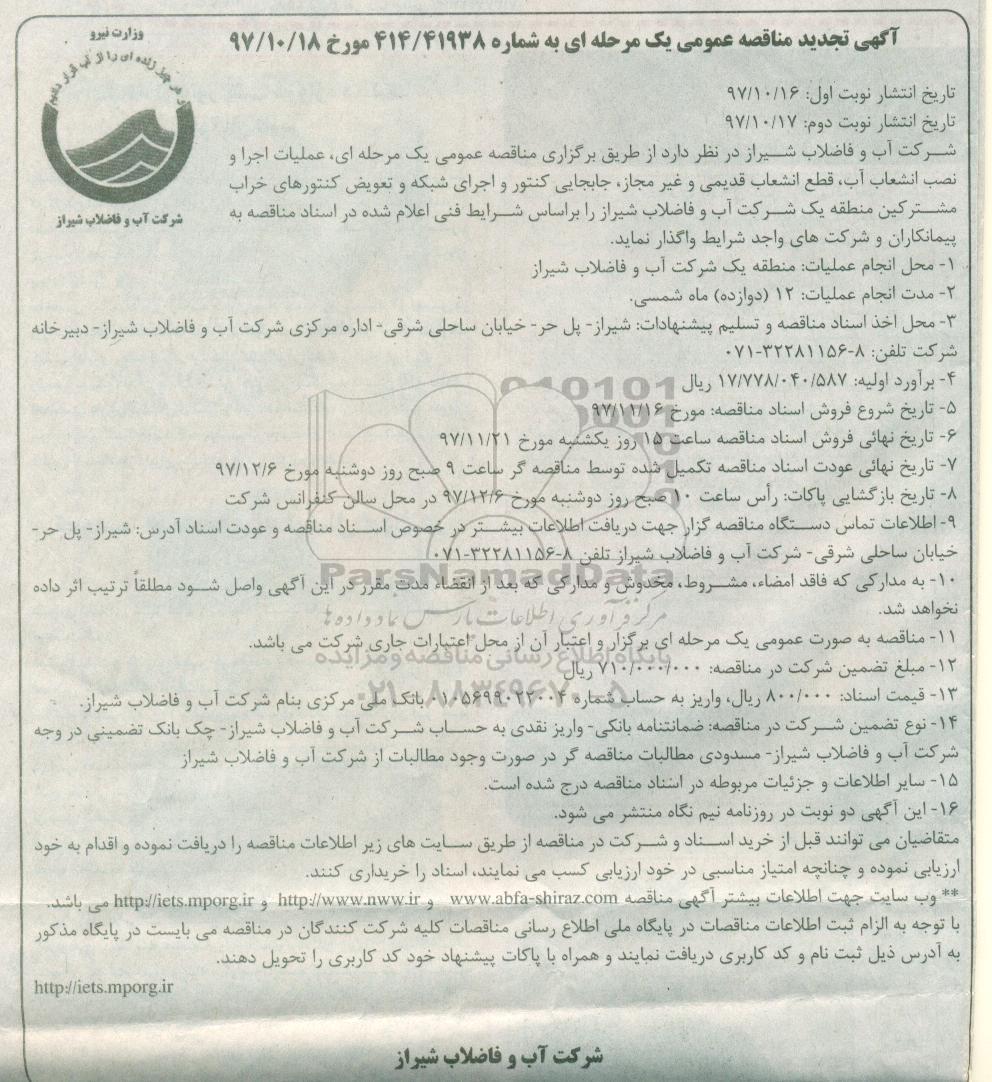 وزارت نیرو
آگهی تجدید مناقصه عمومی یک مرحله ای به شماره ۴۱۴/۴۱۹۳۸ مورخ ۹۷/۱۰/۱۸
شرکت آب و فاضلاب شیراز
تاریخ انتشار نوبت اول: ۹۷/۱۰/۱۶
تاریخ انتشار نوبت دوم: ۹۷/۱۰/۱۷
شرکت آب و فاضلاب شیراز در نظر دارد از طریق برگزاری مناقصه عمومی یک مرحله ای، عملیات اجرا و
نصب انشعاب آب، قطع انشعاب قدیمی و غیر مجاز، جابجایی کنتور و اجرای شبکه و تعویض کنتورهای خراب
مشترکین منطقه یک شرکت آب و فاضلاب شیراز را براساس شرایط فنی اعلام شده در اسناد مناقصه به
پیمانکاران و شرکت های واجد شرایط واگذار نماید.
۱- محل انجام عملیات: منطقه یک شرکت آب و فاضلاب شیراز
۲- مدت انجام عملیات: ۱۲ (دوازده) ماه شمسی.
۳- محل اخذ اسناد مناقصه و تسلیم پیشنهادات: شیراز- پل حر- خیابان ساحلی شرقی- اداره مرکزی شرکت آب و فاضلاب شیراز- دبیرخانه
شرکت تلفن: ۸-۳۲۲۸۱۱۵۶-۰۷۱
۴- برآورد اولیه: ۱۷/۷۷۸/۰۴۰/۵۸۷ ریال
۵- تاریخ شروع فروش اسناد مناقصه: مورخ ۹۷/۱۱/۱۶
۶- تاریخ نهائی فروش اسناد مناقصه ساعت ۱۵ روز یکشنبه مورخ ۹۷/۱۱/۲۱
۷- تاریخ نهائی عودت اسناد مناقصه تکمیل شده توسط مناقصه گر ساعت ۹ صبح روز دوشنبه مورخ ۹۷/۱۲/۶
۸- تاریخ بازگشایی پاکات: رأس ساعت ۱۰ صبح روز دوشنبه مورخ ۹۷/۱۲/۶ در محل سالن کنفرانس شرکت
۹- اطلاعات تماس دستگاه مناقصه گزار جهت دریافت اطلاعات بیشتر در خصوص اسناد مناقصه و عودت اسناد آدرس: شیراز- پل حر-
خیابان ساحلی شرقی- شرکت آب و فاضلاب شیراز تلفن ۸-۳۲۲۸۱۱۵۶-۰۷۱
ParsNamadData
۱۰- به مدارکی که فاقد امضاء، مشروط، مخدوش و مدارکی که بعد از انقضاء مدت مقرر در این آگهی واصل شود مطلقاً ترتیب اثر داده
نخواهد شد.
مرکز فرآوری اطلاعات پارس نماد داده ها
۱۱- مناقصه به صورت عمومی یک مرحله ای برگزار و اعتبار آن از محل اعتبارات جاری شرکت می باشد.
پایگاه اطلاع رسانی مناقصه و مزایده
۱۲- مبلغ تضمین شرکت در مناقصه: ۷۱۰/۰۰۰/۰۰۰ ریال
۱۳- قیمت اسناد: ۸۰۰/۰۰۰ ریال، واریز به حساب شماره ۰۱۰۵۶۹۹۰۹۲۲۰۰۴ بانک ملی مرکزی بنام شرکت آب و فاضلاب شیراز.
۱۴- نوع تضمین شرکت در مناقصه: ضمانتنامه بانکی- واریز نقدی به حساب شرکت آب و فاضلاب شیراز- چک بانک تضمینی در وجه
شرکت آب و فاضلاب شیراز- مسدودی مطالبات مناقصه گر در صورت وجود مطالبات از شرکت آب و فاضلاب شیراز
۱۵- سایر اطلاعات و جزئیات مربوطه در اسناد مناقصه درج شده است.
۱۶- این آگهی دو نوبت در روزنامه نیم نگاه منتشر می شود.
متقاضیان می توانند قبل از خرید اسناد و شرکت در مناقصه از طریق سایت های زیر اطلاعات مناقصه را دریافت نموده و اقدام به خود
ارزیابی نموده و چنانچه امتیاز مناسبی در خود ارزیابی کسب می نمایند، اسناد را خریداری کنند.
** وب سایت جهت اطلاعات بیشتر آگهی مناقصه www.abfa-shiraz.com و http://www.nww.ir و http://iets.mporg.ir می باشد.
با توجه به الزام ثبت اطلاعات مناقصات در پایگاه ملی اطلاع رسانی مناقصات کلیه شرکت کنندگان در مناقصه می بایست در پایگاه مذکور
به آدرس ذیل ثبت نام و کد کاربری دریافت نمایند و همراه با پاکات پیشنهاد خود کد کاربری را تحویل دهند.
http://iets.mporg.ir
شرکت آب و فاضلاب شیراز